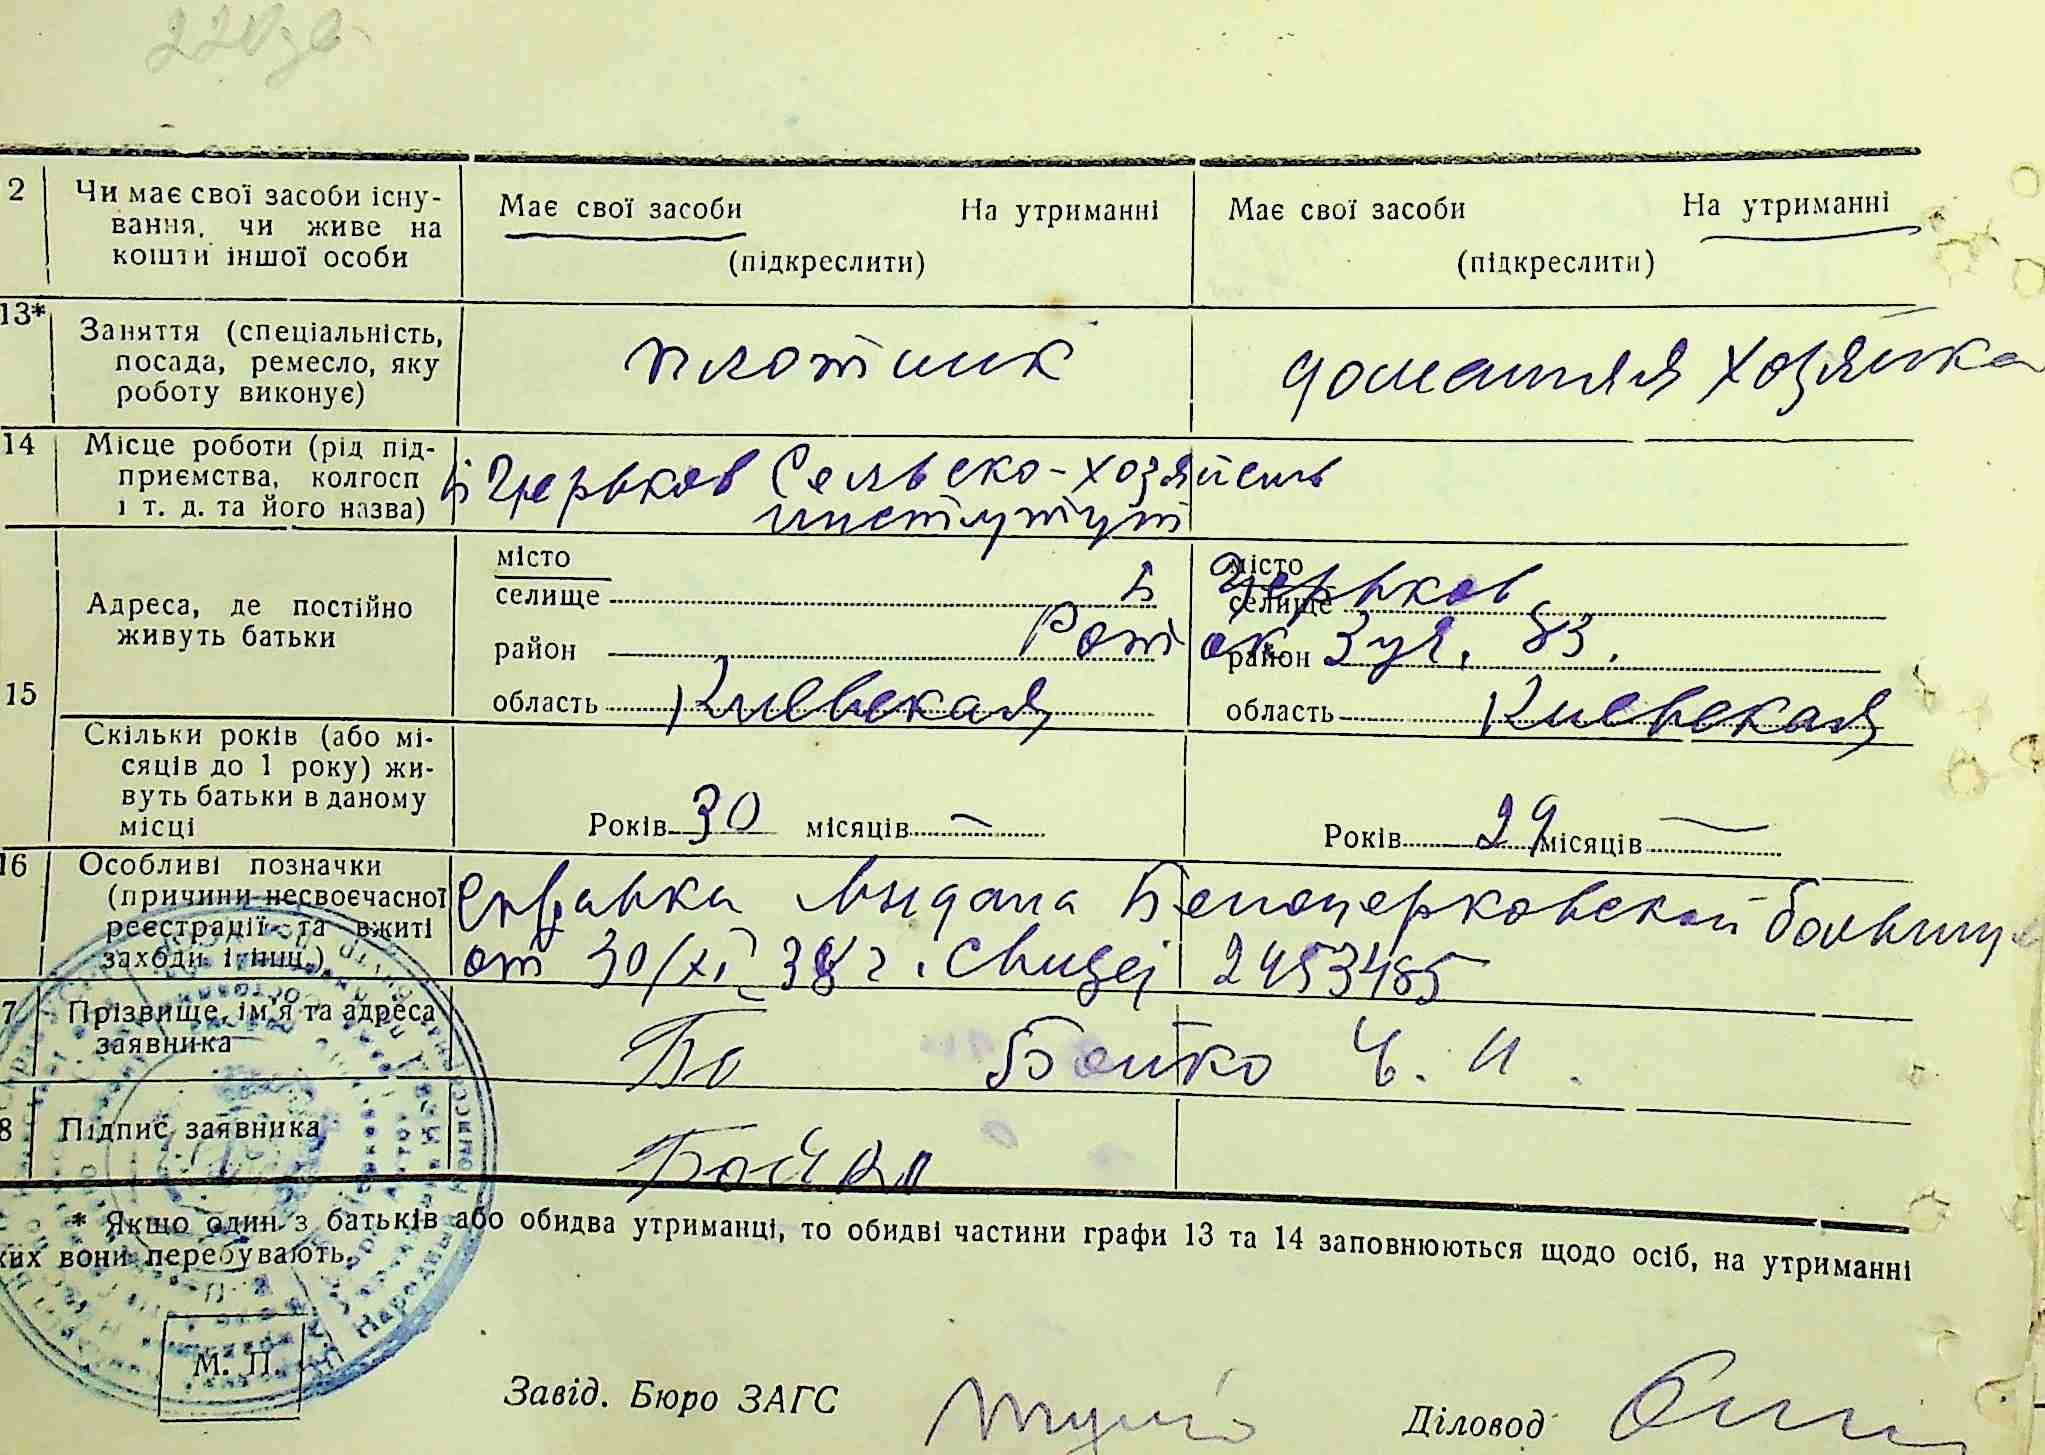 2 Чи має свої засоби існу- Має свої засоби На утриманні Має свої засоби На утриманні
вання, чи живе на
кошти іншої особи (підкреслити) (підкреслити)
13* Заняття (спеціальність,
посада, ремесло, яку плотник домашняя хозяйка
роботу виконує)
14 Місце роботи (рід під-
приємства, колгосп Б Церьков Сельско-хозяйств
і т. д. та його назва) институт
місто місто
селище Б Церьков селище
Адреса, де постійно
живуть батьки
район Рот ок. 3 уч. 83. район
15 область Киевская область Киевская
Скільки років (або мі-
сяців до 1 року) жи-
вуть батьки в даному
місці Років 30 місяців — Років 29 місяців —
16 Особливі позначки
(причини несвоєчасної Справка выдана Белоцерковской больниц
реєстрації та вжиті
заходи і инш.) от 30/XI 38 г. 2453485
7 Прізвище, ім'я та адреса
заявника Бо Бойко И.
8 Підпис заявника Бойко
* Якщо один з батьків або обидва утриманці, то обидві частини графи 13 та 14 заповнюються щодо осіб, на утриманні
ких вони перебувають.
М. П.
Завід. Бюро ЗАГС Діловод